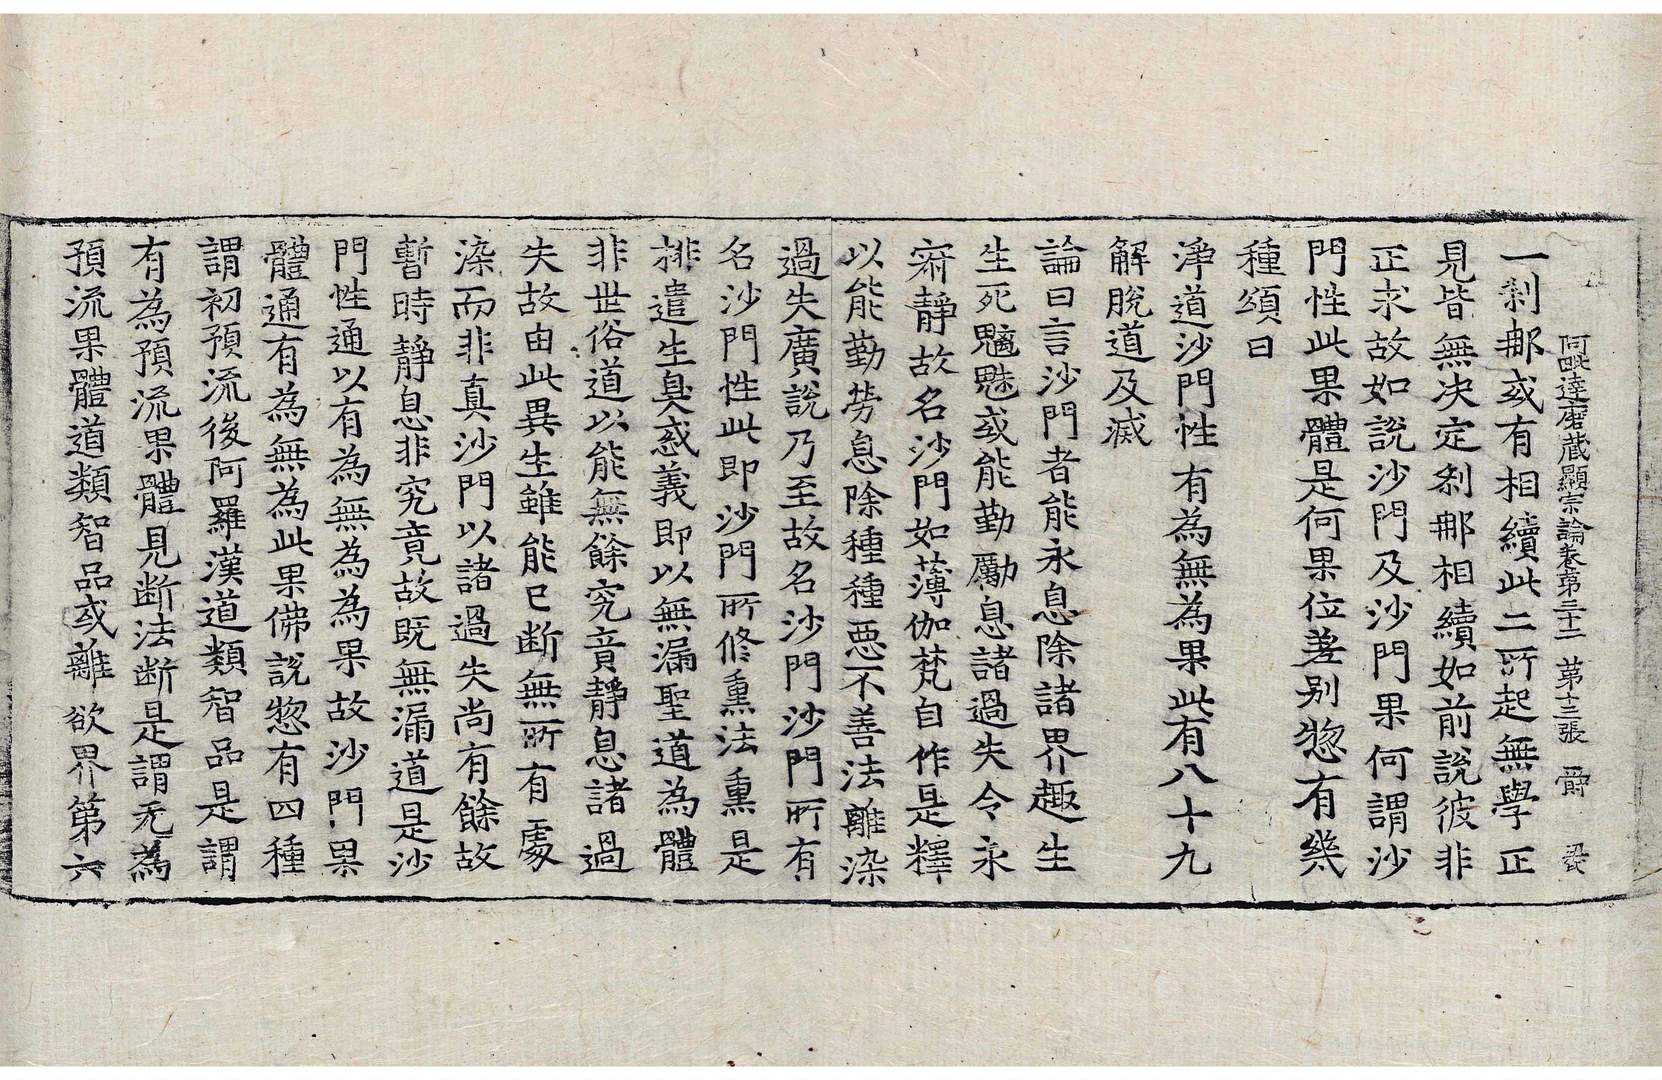 阿毗達磨藏顯宗論卷第三十二　第十三張　爵
一刹那或有相續此二所起無學正
見皆無決定刹那相續如前說彼非
正求故如說沙門及沙門果何謂沙
門性此果體是何果位差別惣有幾
種頌曰
淨道沙門性有為無為果此有八十九
解脫道及滅
論曰言沙門者能永息除諸界趣生
生死魑魅或能勤勵息諸過失令永
寂靜故名沙門如薄伽梵自作是釋
以能勤勞息除種種惡不善法離染
過失廣說乃至故名沙門沙門所有
名沙門性此即沙門所修熏法熏是
排遣生臭惑義即以無漏聖道為體
非世俗道以能無餘究竟靜息諸過
失故由此異生雖能已断無所有處
染而非真沙門以諸過失尚有餘故
暫時靜息非究竟故既無漏道是沙
門性通以有為無為為果故沙門果
體通有為無為此果佛說惣有四種
謂初預流後阿羅漢道類智品是謂
有為預流果體見断法断是謂无為
預流果體道類智品或離欲界第六